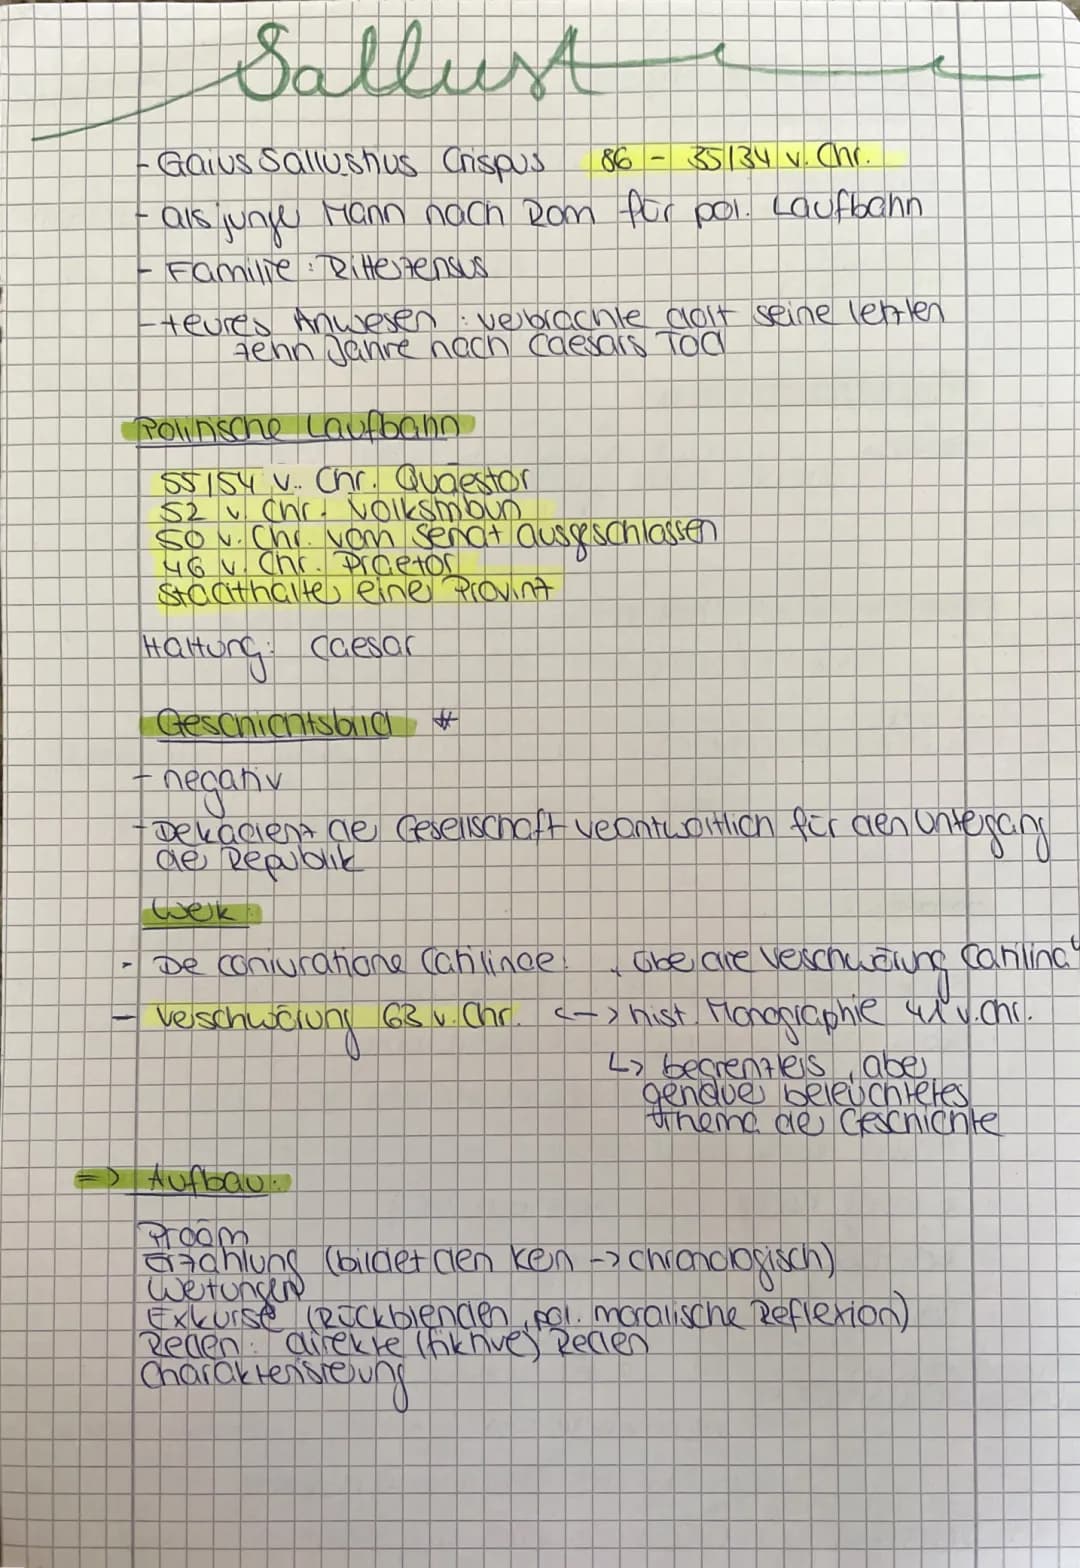 Sallust
- Gaius Sallustius Crispus 86 - 35/34 v. Chr.
- als junger Mann nach Rom für pol. Laufbahn
- Familie: Ritterzensus
- teures Anwesen: verbrachte dort seine letzten
zehn Jahre nach Caesars Tod
Politische Laufbahn
55/54 v. Chr. Quaestor
52 v. Chr. Volkstribun
50 v. Chr. vom Senat ausgeschlossen
46 v. Chr. Praetor
Staathalter einer Provinz
Haltung: Caesar
Geschichtsbild *
- negativ
- Dekadenz der Gesellschaft verantwortlich für den Untergang
der Republik
Werk:
- De coniuratione Catilinae: „über die Verschwörung Catilina"
- Verschwörung 63 v. Chr. <-> hist. Monographie 41 v. Chr.
↳ begrenztes, aber
genauer beleuchtetes
Thema der Geschichte
=> Aufbau:
Proöm
Erzählung (bildet den Kern -> chronologisch)
Wertungen
Exkurse (Rückblenden, pol. moralische Reflexion)
Reden: direkte (fiktive) Reden
Charakterisierung